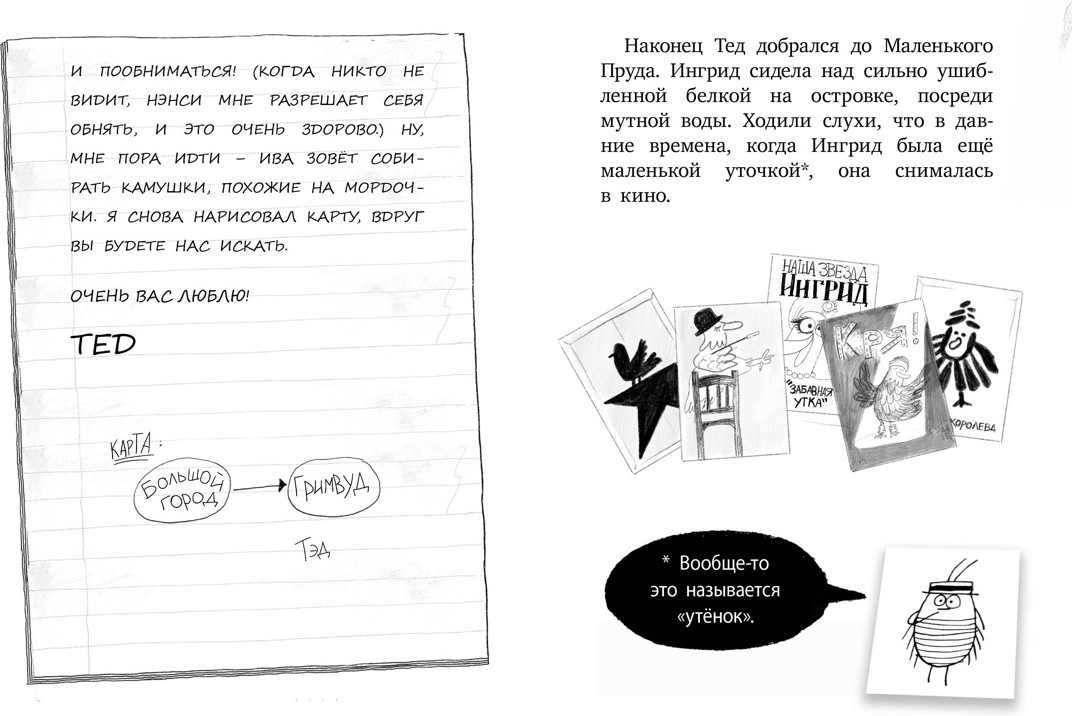 И ПООБНИМАТЬСЯ! (КОГДА НИКТО НЕ
ВИДИТ, НЭНСИ МНЕ РАЗРЕШАЕТ СЕБЯ
ОБНЯТЬ, И ЭТО ОЧЕНЬ ЗДОРОВО.) НУ,
МНЕ ПОРА ИДТИ – ИВА ЗОВЁТ СОБИ-
РАТЬ КАМУШКИ, ПОХОЖИЕ НА МОРДОЧ-
КИ. Я СНОВА НАРИСОВАЛ КАРТУ, ВДРУГ
ВЫ БУДЕТЕ НАС ИСКАТЬ.
ОЧЕНЬ ВАС ЛЮБЛЮ!
ТЕД
КАРТА:
БОЛЬШОЙ
ГОРОД
ГРИМВУД
ТЭД
Наконец Тед добрался до Маленького
Пруда. Ингрид сидела над сильно ушиб-
ленной белкой на островке, посреди
мутной воды. Ходили слухи, что в дав-
ние времена, когда Ингрид была ещё
маленькой уточкой*, она снималась
в кино.
НАША ЗВЕЗДА
ИНГРИД
"ЗАБАВНАЯ
УТКА"
КРЯ!
КОРОЛЕВА
* Вообще-то
это называется
«утёнок».